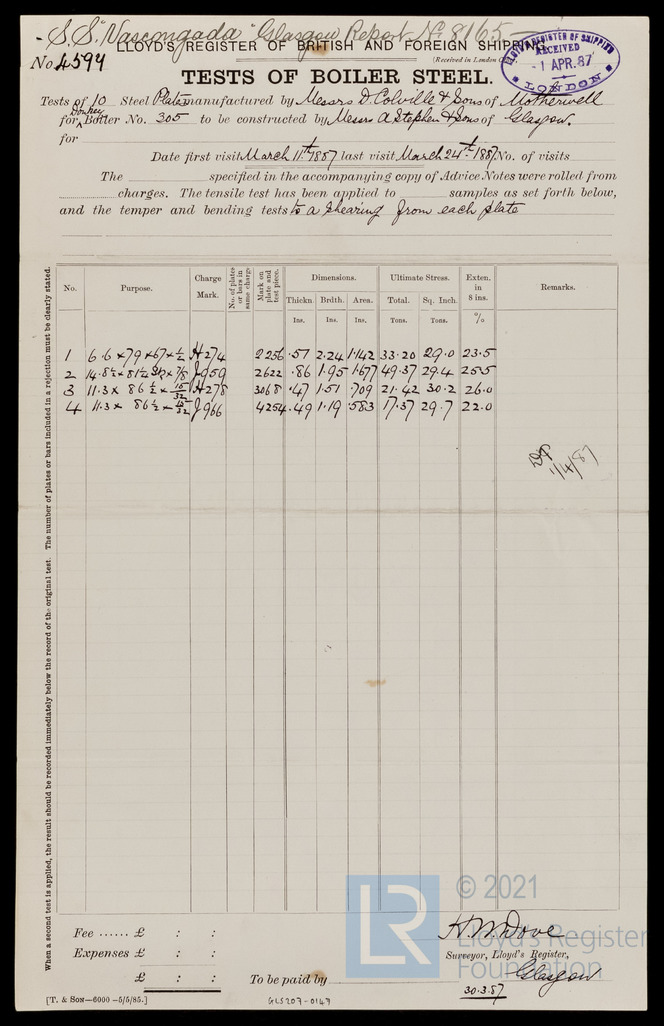 S.S. "Vascongada" Glasgow Report No 8165
LLOYD'S REGISTER OF BRITISH AND FOREIGN SHIPPING.
No 4594
(Received in London
LLOYD'S REGISTER OF SHIPPING
RECEIVED
-1 APR.87
LONDON
TESTS OF BOILER STEEL.
Tests of 10 Steel Plates manufactured by Messrs D. Colville & Sons of Motherwell
for Donkey Boiler No. 305 to be constructed by Messrs A Stephen & Sons of Glasgow.
for
Date first visit March 11th 1887 last visit March 24th 1887 No. of visits
The specified in the accompanying copy of Advice Notes were rolled from
charges. The tensile test has been applied to samples as set forth below,
and the temper and bending tests to a shearing from each plate
When a second test is applied, the result should be recorded immediately below the record of the original test. The number of plates or bars included in a rejection must be clearly stated.
No. Purpose. Charge Mark. No. of plates or bars in same charge Mark on plate and test piece. Dimensions. Ultimate Stress. Exten. in 8 ins. Remarks.
Thickn Brdth. Area. Total. Sq. Inch.
Ins. Ins. Ins. Tons. Tons. %
1 6.6 × 79 × 67 × ½ H274 2256 .51 2.24 1.142 33.20 29.0 23.5
2 14.8½ × 81½ × ⅞ J959 2622 .86 1.95 1.677 49.37 29.4 25.5
3 11.3 × 86½ × 15/32 H278 3068 .47 1.51 .709 21.42 30.2 26.0
4 11.3 × 86½ × 15/32 J966 4254 .49 1.19 .583 17.37 29.7 22.0
1/4/87
© 2021
LR
Lloyd's Register
Foundation
Fee ...... £ : :
Expenses £ : :
£ : :
To be paid by
H. W. Dove
Surveyor, Lloyd's Register,
Glasgow
30.3.87
[T. & SON—6000—5/5/85.]
GLS207-0149